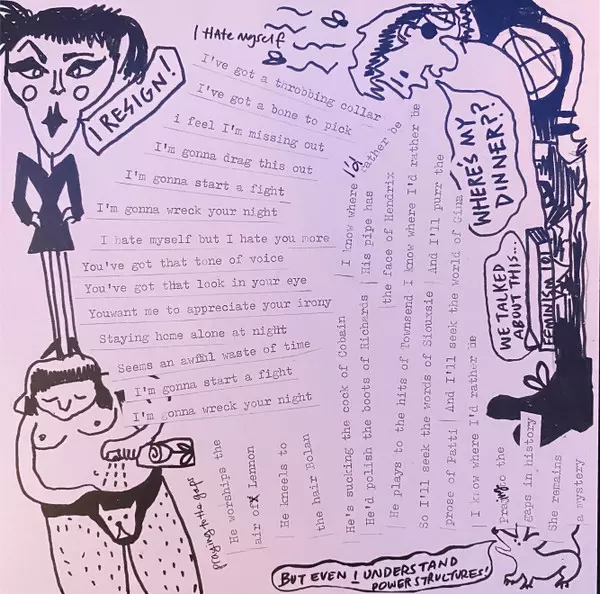 I HATE MYSELF
I RESIGN!
I've got a throbbing collar
I've got a bone to pick
i feel I'm missing out
I'm gonna drag this out
I'm gonna start a fight
I'm gonna wreck your night
I hate myself but I hate you more
You've got that tone of voice
You've got that look in your eye
Youwant me to appreciate your irony
Staying home alone at night
Seems an awful waste of time
I'm gonna start a fight
I'm gonna wreck your night
praying to the gaps
He worships the
air of Lennon
He kneels to
the hair Bolan
He's sucking the cock of Cobain
I know where I'd rather be
He'd polish the boots of Richards
His pipe has
the face of Hendrix
He plays to the hits of Townsend I know where I'd rather be
So I'll seek the words of Siouxsie
And I'll purr the
prose of Patti
And I'll seek the world of
I know where I'd rather be
Praying to the
gaps in history
She remains
a mystery
WHERE'S MY
DINNER??
WE TALKED
ABOUT THIS...
FEMINISM 101
BUT EVEN I UNDERSTAND
POWER STRUCTURES!